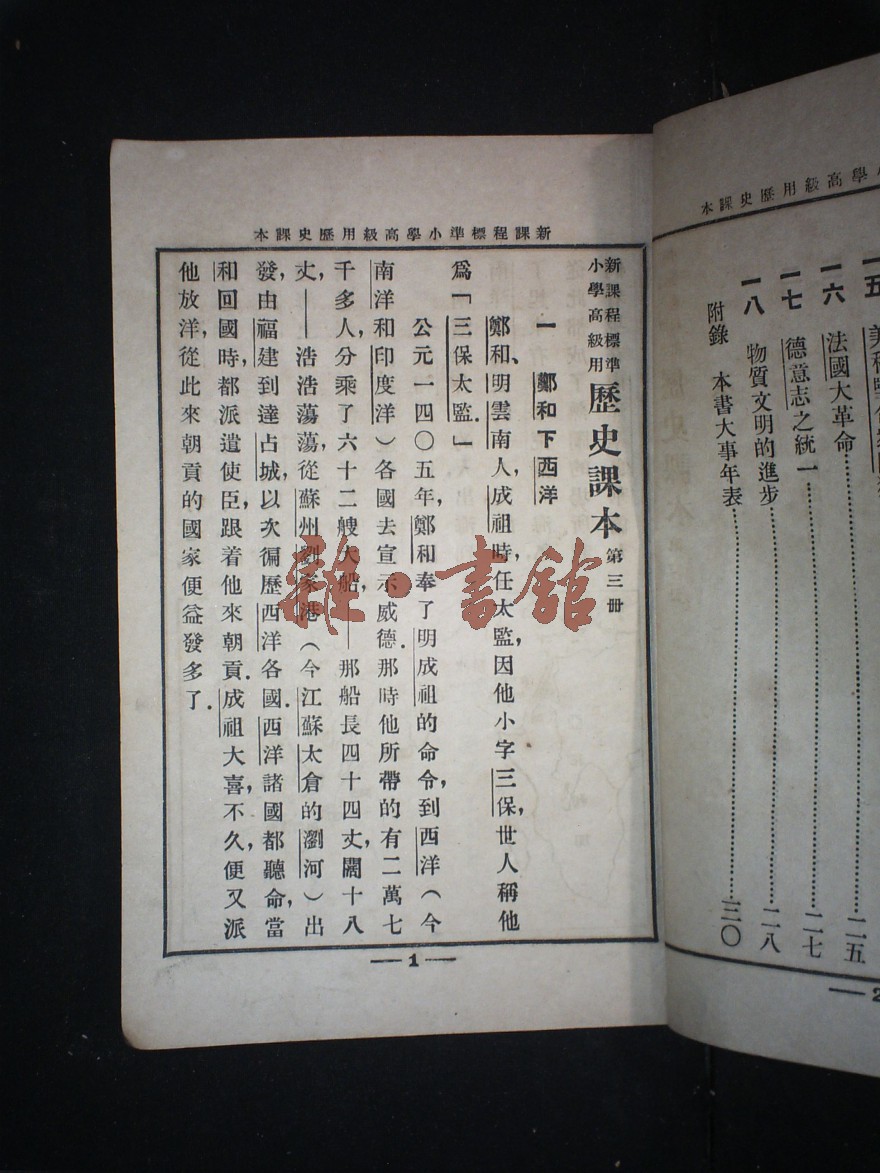 學高級用歷史課本
一五
一六 法國大革命……二五
一七 德意志之統一……二七
一八 物質文明的進步……二八
附錄 本書大事年表……三〇
2
新課程標準小學高級用歷史課本
新課程標準
小學高級用
歷史課本 第三册
一 鄭和下西洋
鄭和、明雲南人，成祖時，任太監，因他小字三保，世人稱他
爲「三保太監．」
公元一四〇五年，鄭和奉了明成祖的命令，到西洋（今
南洋和印度洋）各國去宣示威德．那時他所帶的有二萬七
千多人，分乘了六十二艘大船，——那船長四十四丈，闊十八
丈，——浩浩蕩蕩，從蘇州劉家港（今江蘇太倉的瀏河）出
發，由福建到達占城，以次徧歷西洋各國．西洋諸國都聽命，當
和回國時，都派遣使臣，跟着他來朝貢．成祖大喜，不久，便又派
他放洋，從此來朝貢的國家便益發多了．
—1—
雜·書館